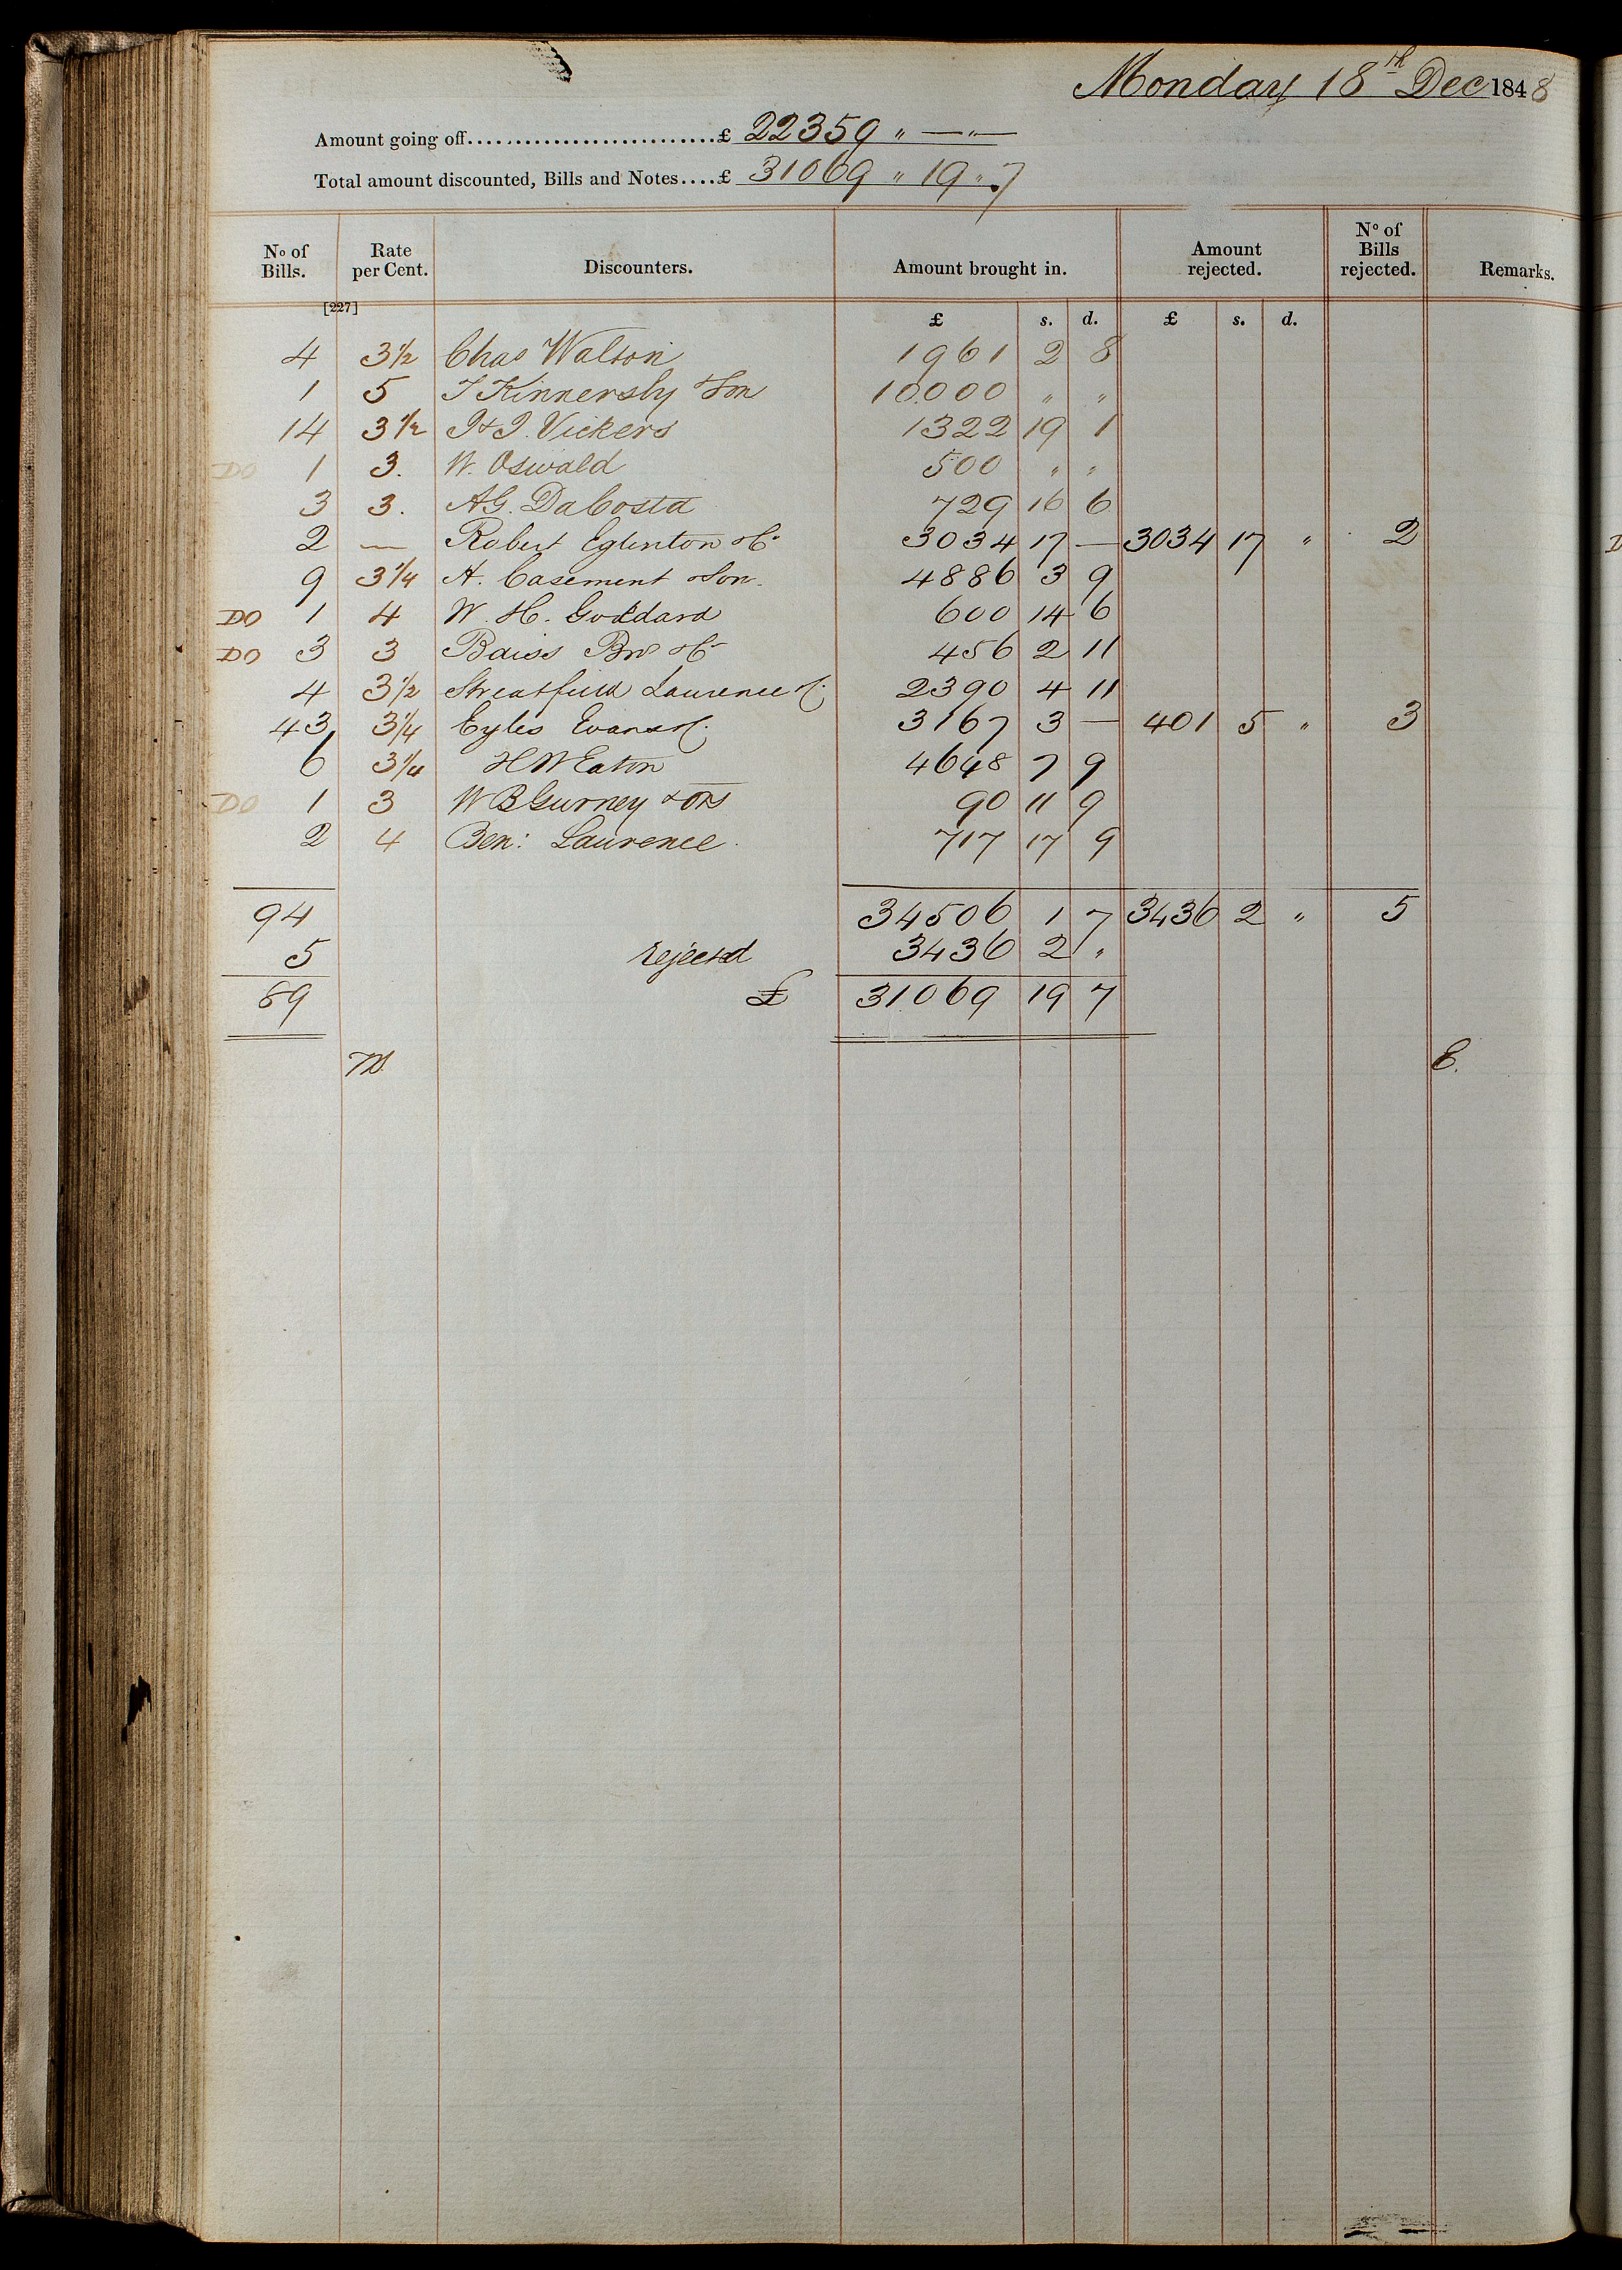 Monday 18th Dec 1848
Amount going off...........................£ 22359 " — " —
Total amount discounted, Bills and Notes....£ 31069 " 19 " 7
No of Bills. Rate per Cent. Discounters. Amount brought in. Amount rejected. No of Bills rejected. Remarks.
[227]
£ s. d. £ s. d.
4 3½ Chas Walton 1961 2 8
1 5 T Kinnersly & Son 10.000 " "
14 3½ J & J. Vickers 1322 19 1
DO 1 3. W. Oswald 500 " "
3 3. AG. DaCosta 729 16 6
2 — Robert Eglinton & Co 3034 17 — 3034 17 " 2
9 3¼ A. Casement & Son 4886 3 9
DO 1 4 W. H. Goddard 600 14 6
DO 3 3 Baiss Bros & Co 456 2 11
4 3½ Streatfield Laurence & Co 2390 4 11
43 3¼ Eyles Evans & Co. 3167 3 — 401 5 " 3
6 3¼ H W Eaton 4648 7 9
DO 1 3 W B Gurney & Ons 90 11 9
2 4 Ben: Laurence. 717 17 9
94 34506 1 7 3436 2 " 5
5 rejected 3436 2 "
89 £ 31069 19 7